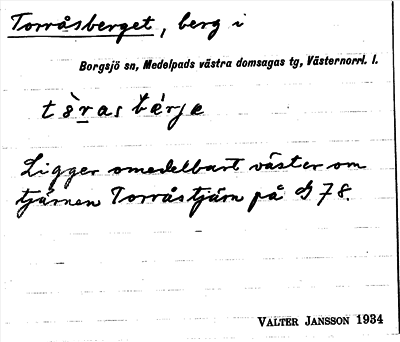 Torråsberget, berg i
Borgsjö sn, Medelpads västra domsagas tg, Västernorrl. l.
tò̱ras bærje
Ligger omedelbart väster om
tjärnen Torråstjärn på 78.
VALTER JANSSON 1934